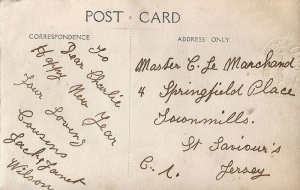 POST CARD
CORRESPONDENCE
To
Dear Charlie
Happy New Year
Your Loving
Cousins
Jack, Janet
Wilson
ADDRESS ONLY.
Master C. Le Marchand
4 Springfield Place
Townmills.
St Saviour's
C. I. Jersey